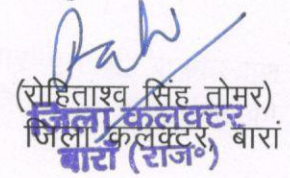 (रोहिताश्व सिंह तोमर)
जिला कलक्टर
जिला कलक्टर, बारां
बारां (राज०)